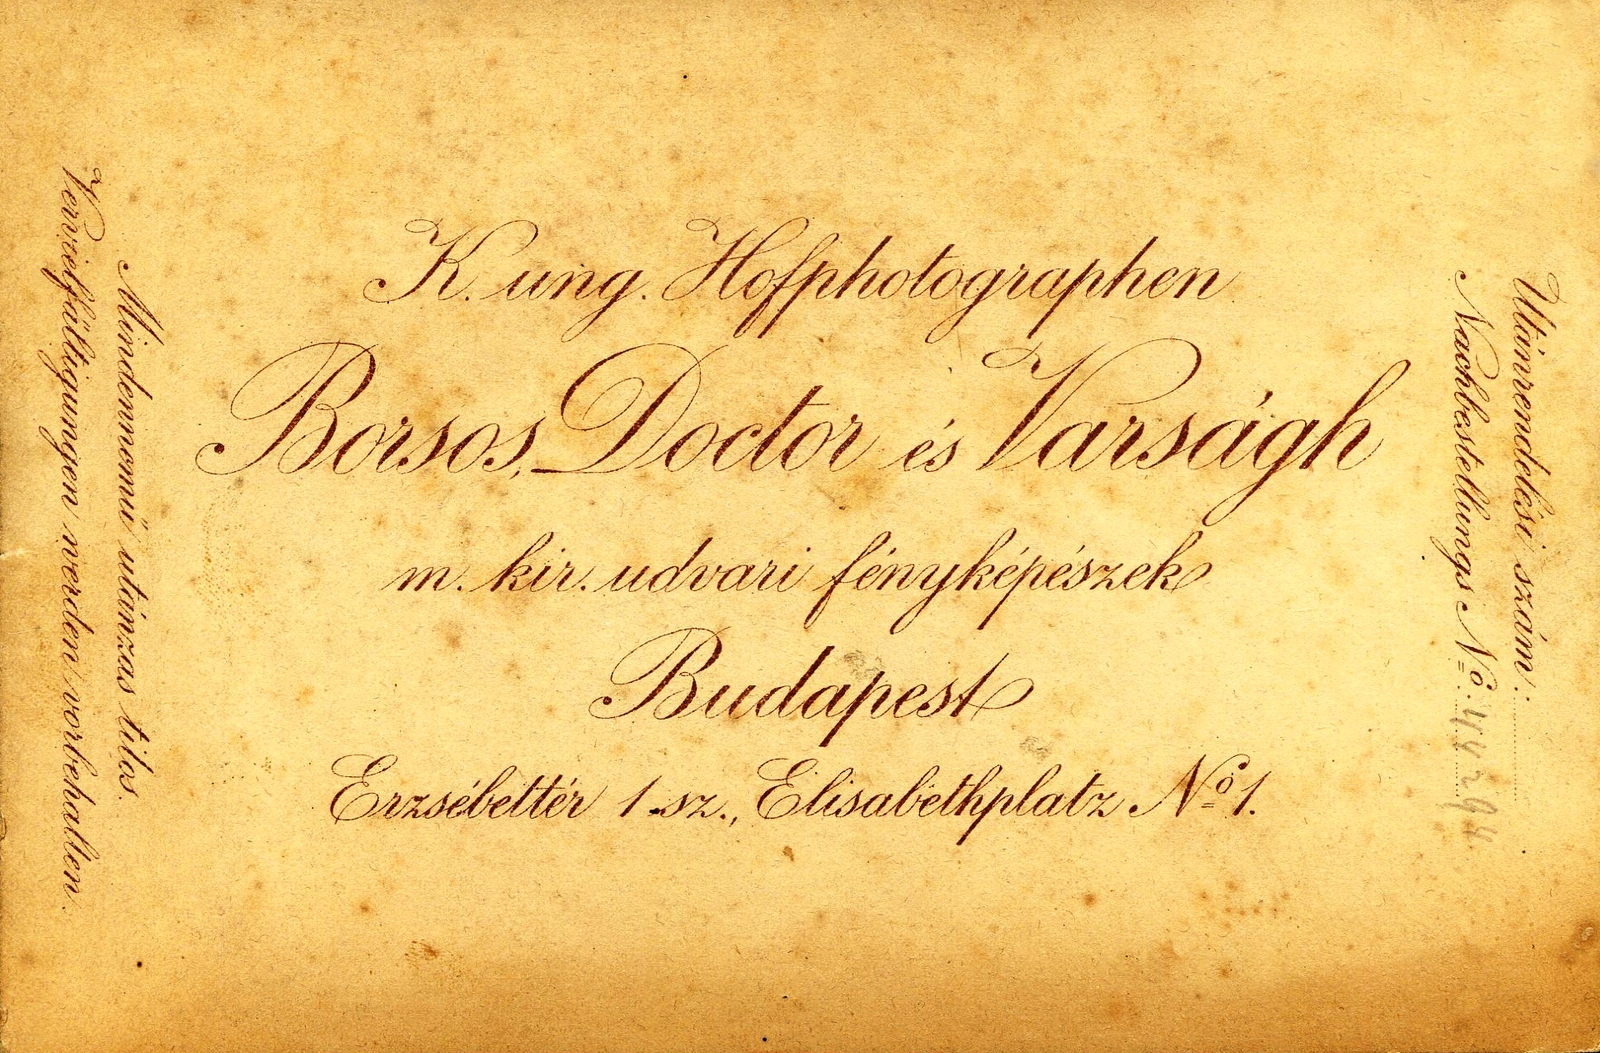 K. ung. Hofphotographen
Borsos, Doctor és Varságh
m. kir. udvari fényképészek
Budapest
Erzsébettér 1 sz., Elisabethplatz No 1.
Mindennemű utánzas tilos.
Vervielfältigungen werden vorbehalten.
Utánrendelési szám:
Nachbestellungs No: